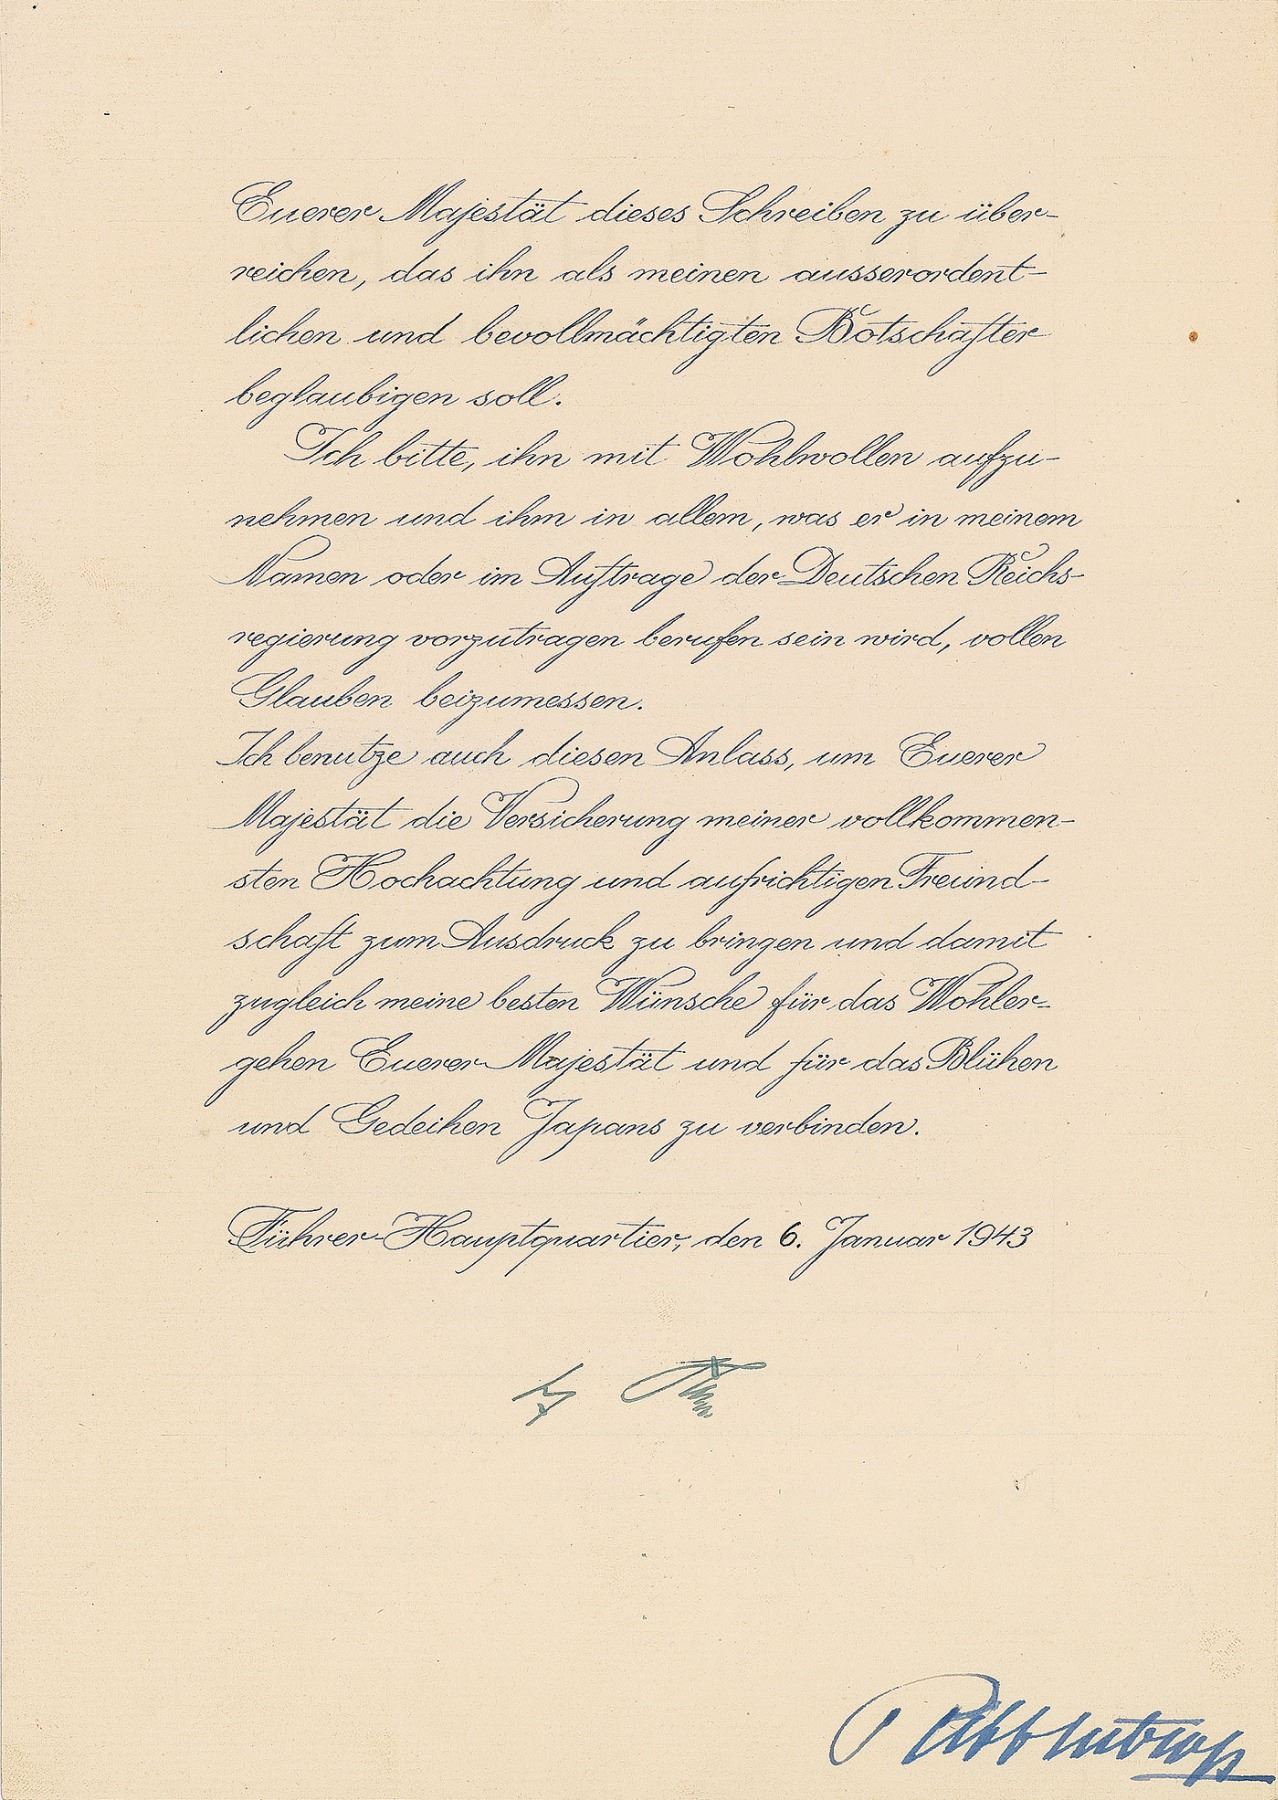 Euerer Majestät dieses Schreiben zu über-
reichen, das ihn als meinen ausserordent-
lichen und bevollmächtigten Botschafter
beglaubigen soll.
Ich bitte, ihn mit Wohlwollen aufzu-
nehmen und ihm in allem, was er in meinem
Namen oder im Auftrage der Deutschen Reichs-
regierung vorzutragen berufen sein wird, vollen
Glauben beizumessen.
Ich benutze auch diesen Anlass, um Euerer
Majestät die Versicherung meiner vollkommen-
sten Hochachtung und aufrichtigen Freund-
schaft zum Ausdruck zu bringen und damit
zugleich meine besten Wünsche für das Wohler-
gehen Euerer Majestät und für das Blühen
und Gedeihen Japans zu verbinden.
Führer-Hauptquartier, den 6. Januar 1943
Ribbentrop